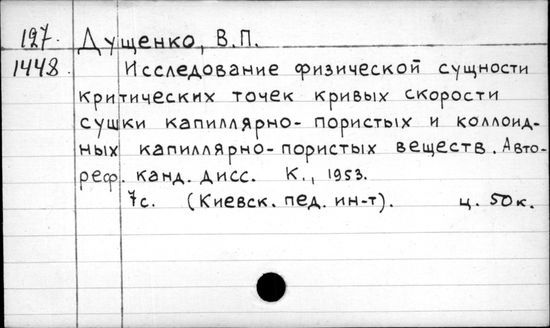 127. Дущенко, В.П.
1448. Исследование физической сущности
критических точек кривых скорости
сушки капиллярно-пористых и коллоид-
ных капиллярно-пористых веществ. Авто-
реф. канд. дисс. К., 1953.
7с. (Киевск. пед. ин-т). ц. 50к.